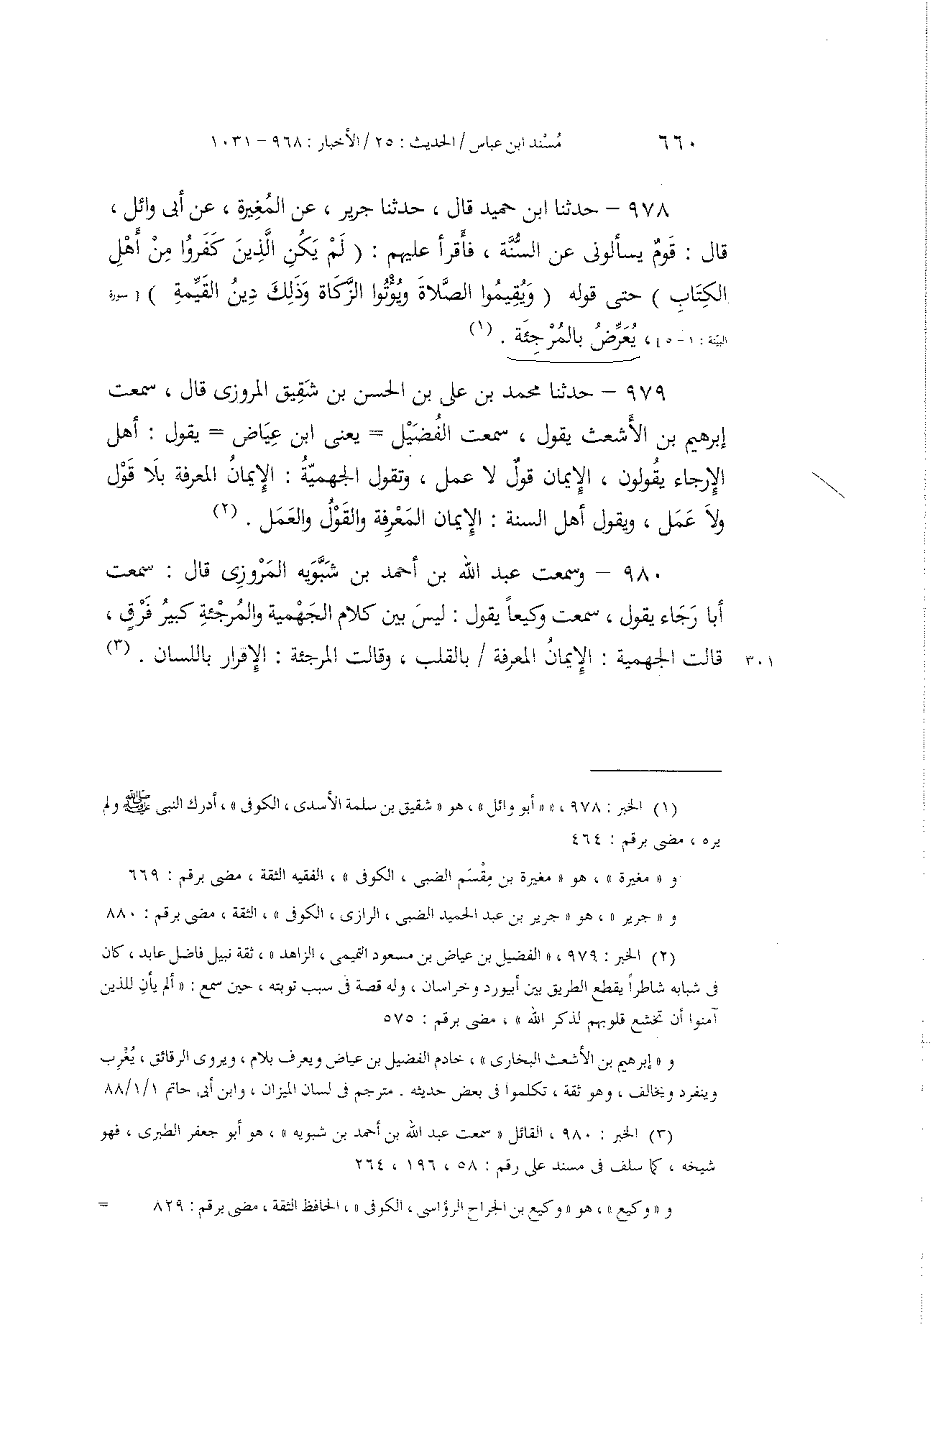 ٦٦٠ مُسْند ابن عباس / الحديث : ٢٥ / الأخبار : ٩٦٨ – ١٠٣١
٩٧٨ – حدثنا ابن حميد قال ، حدثنا جرير ، عن المُغِيرة ، عن أبى وائل ،
قال : قَومٌ يسألونى عن السُّنَّة ، فأَقرأ عليهم : ( لَمْ يَكُنِ الَّذِينَ كَفَروُا مِنْ أَهْلِ
الكِتَابِ ) حتى قوله ( وَيُقِيمُوا الصَّلاةَ وَيُؤْتُوا الزَّكَاة وَذَلِكَ دِينُ القَيِّمةِ ) [ سورة
البيّنة : ١ – ٥ ] ، يُعَرِّضُ بالمُرْجِئَة . (١)
٩٧٩ – حدثنا محمد بن على بن الحسن بن شَقِيق المروزى قال ، سمعت
إبرهيم بن الأَشعث يقول ، سمعت الفُضَيْل = يعنى ابن عِيَاض = يقول : أهل
الإِرجاء يقُولون ، الإِيمان قولٌ لا عمل ، وتقول الجهميّةُ : الإِيمانُ المعرفة بلَا قَوْل
ولاَ عَمَل ، ويقول أهل السنة : الإِيمان المَعْرِفة والقَوْلُ والعَمَل . (٢)
٩٨٠ – وسمعت عبد الله بن أحمد بن شَبُّوَيه المَرْوزِى قال : سمعت
أبا رَجَاء يقول ، سمعت وكيعاً يقول : ليسَ بين كلام الجَهْمية والمُرْجئةِ كبيرُ فَرْقٍ ،
٣٠١ قالت الجهمية : الإِيمانُ المعرفة / بالقلب ، وقالت المرجئة : الإِقرار باللسان . (٣)
(١) الخبر : ٩٧٨ ، « أبو وائل » ، هو « شقيق بن سلمة الأسدى ، الكوفى » ، أدرك النبى ﷺ ولم
يره ، مضى برقم : ٤٦٤
و « مغيرة » ، هو « مغيرة بن مِقْسَم الضبى ، الكوفى » ، الفقيه الثقة ، مضى برقم : ٦٦٩
و « جرير » ، هو « جرير بن عبد الحميد الضبى ، الرازى ، الكوفى » ، الثقة ، مضى برقم : ٨٨٠
(٢) الخبر : ٩٧٩ ، « الفضيل بن عياض بن مسعود التميمى ، الزاهد » ، ثقة نبيل فاضل عابد ، كان
فى شبابه شاطراً يقطع الطريق بين أبيورد وخراسان ، وله قصة فى سبب توبته ، حين سمع : « ألم يأنِ للذين
آمنوا أن تخشع قلوبهم لذكر الله » ، مضى برقم : ٥٧٥
و « إبرهيم بن الأشعث البخارى » ، خادم الفضيل بن عياض ويعرف بلام ، ويروى الرقائق ، يُغْرِب
وينفرد ويخالف ، وهو ثقة ، تكلموا فى بعض حديثه . مترجم فى لسان الميزان ، وابن أبى حاتم ١/١/٨٨
(٣) الخبر : ٩٨٠ ، القائل « سمعت عبد الله بن أحمد بن شبويه » ، هو أبو جعفر الطبرى ، فهو
شيخه ، كما سلف فى مسند على رقم : ٥٨ ، ١٩٦ ، ٢٦٤
و « وكيع » ، هو « وكيع بن الجراح الرؤاسى ، الكوفى » ، الحافظ الثقة ، مضى برقم : ٨٢٩ =